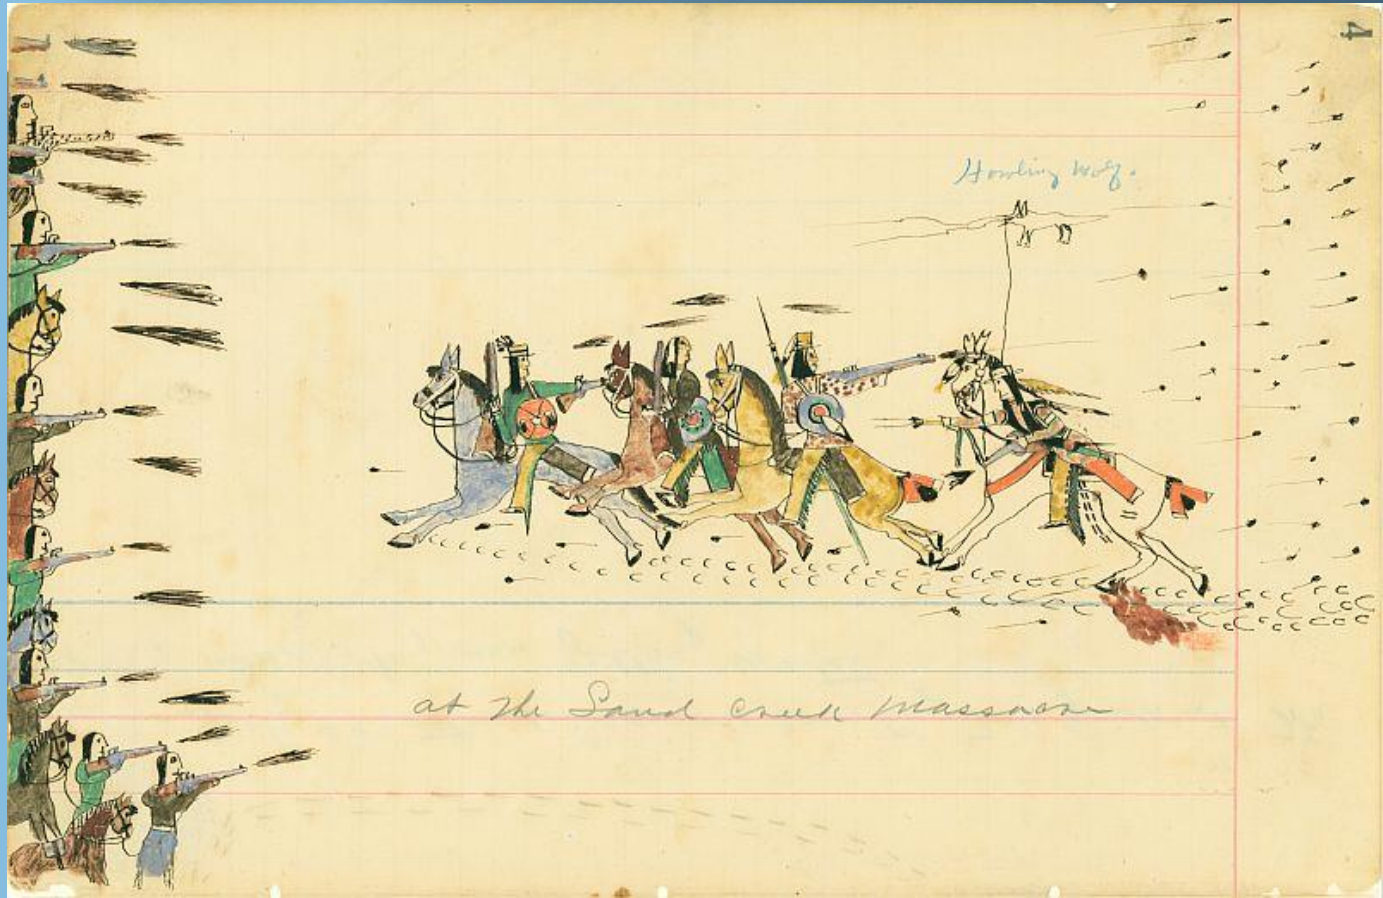 4
Howling Wolf.
at the Sand Creek Massacre